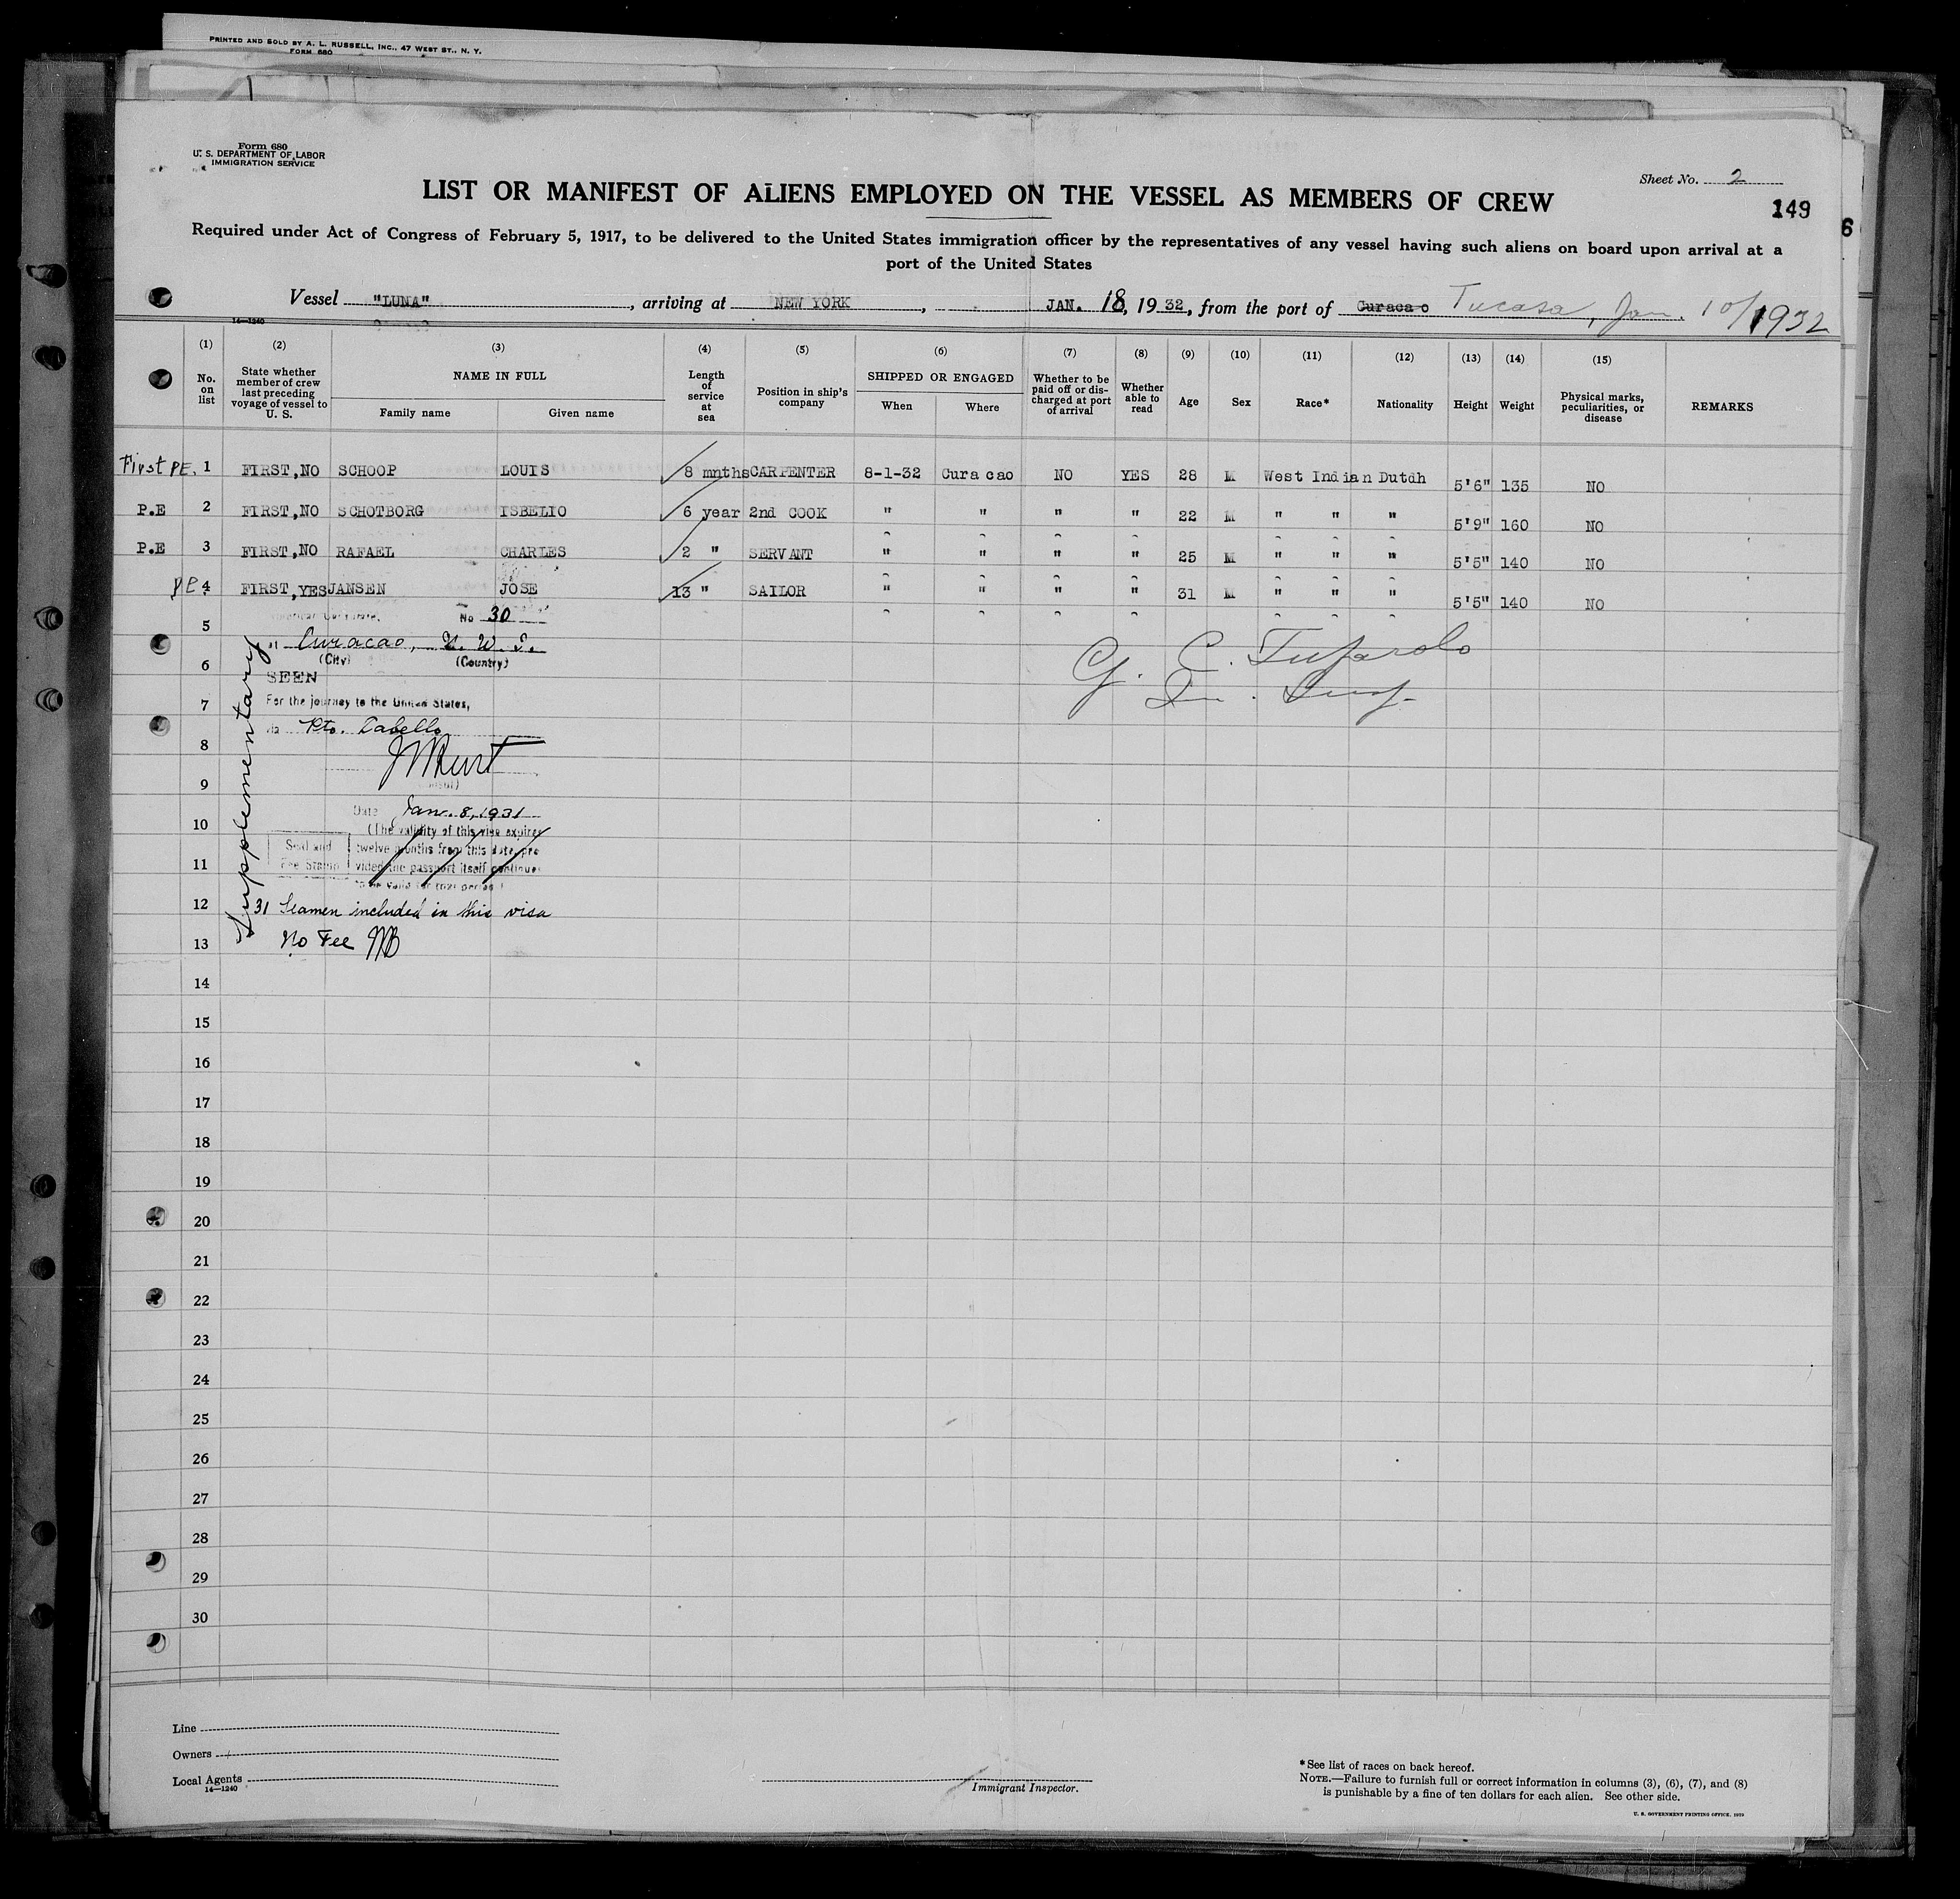 PRINTED AND SOLD BY A. L. RUSSELL, INC., 47 WEST ST., N. Y.
FORM 680
Form 680
U. S. DEPARTMENT OF LABOR
IMMIGRATION SERVICE
Sheet No. 2
LIST OR MANIFEST OF ALIENS EMPLOYED ON THE VESSEL AS MEMBERS OF CREW
149
6
Required under Act of Congress of February 5, 1917, to be delivered to the United States immigration officer by the representatives of any vessel having such aliens on board upon arrival at a
port of the United States
Vessel "LUNA", arriving at NEW YORK, JAN. 18, 1932, from the port of Curacao Tucasa, Jan. 10/1932
14—1240
(1) (2) (3) (4) (5) (6) (7) (8) (9) (10) (11) (12) (13) (14) (15)
No. on list
State whether member of crew last preceding voyage of vessel to U. S.
NAME IN FULL
Family name
Given name
Length of service at sea
Position in ship's company
SHIPPED OR ENGAGED
When
Where
Whether to be paid off or discharged at port of arrival
Whether able to read
Age
Sex
Race*
Nationality
Height
Weight
Physical marks, peculiarities, or disease
REMARKS
First PE. 1 FIRST,NO SCHOOP LOUIS 8 mnths CARPENTER 8-1-32 Curacao NO YES 28 M West Indian Dutdh 5'6" 135 NO
P.E 2 FIRST,NO SCHOTBORG ISBELIO 6 year 2nd COOK " " " " 22 M " " " 5'9" 160 NO
P.E 3 FIRST,NO RAFAEL CHARLES 2 " SERVANT " " " " 25 M " " " 5'5" 140 NO
PE 4 FIRST,YES JANSEN JOSE 13 " SAILOR " " " " 31 M " " " 5'5" 140 NO
5
No 30
Curacao, N. W. I.
(City) (Country)
6
SEEN
7
For the journey to the United States,
Pto. Cabello
8
9
Date Jan. 8, 1931
10
(The validity of this visa expires
twelve months from this date, pro
vided the passport itself continues
to be valid for that period)
Seal and
Fee Stamp
11
12
31 Seamen included in this visa
13
No Fee
Supplementary
14
15
16
17
18
19
20
21
22
23
24
25
26
27
28
29
30
Line
Owners
Local Agents
14—1240
Immigrant Inspector.
*See list of races on back hereof.
NOTE.—Failure to furnish full or correct information in columns (3), (6), (7), and (8)
is punishable by a fine of ten dollars for each alien. See other side.
U. S. GOVERNMENT PRINTING OFFICE, 1929